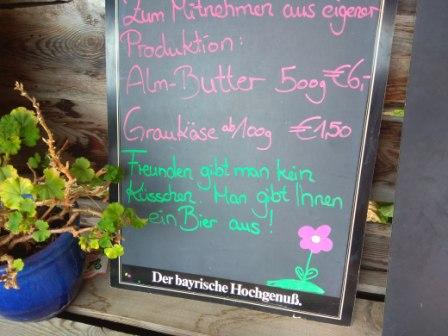 Zum Mitnehmen aus eigener
Produktion:
Alm-Butter 500g €6,-
Graukäse ab 100g €1,50
Freunden gibt man kein
Küsschen. Man gibt Ihnen
ein Bier aus!
Der bayrische Hochgenuß,